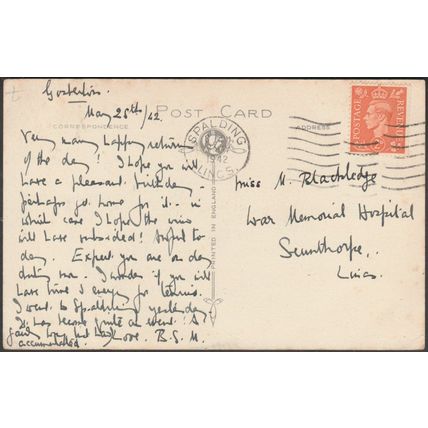 Gosberton
May 28th/42.
POST CARD
CORRESPONDENCE
ADDRESS
Very many happy returns
of the day! I hope you will
have a pleasant birthday -
perhaps go home for it - in
which case I hope the
will have subsided! Awful to-
day. Expect you are on day
duty now. I wonder if you will
have time & energy for tennis.
I went to Spalding yesterday
It has become quite an event! A
Love. B.S.M.
accumulated
SPALDING
1942
LINCS.
PRINTED IN ENGLAND
POSTAGE
REVENUE
Miss M. Blackledge
War Memorial Hospital
Scunthorpe.
Lincs.